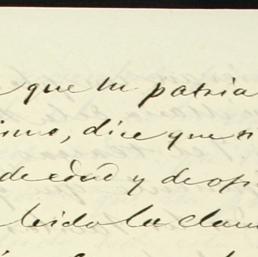 que tu patria
imo, dice que si
de edad y de opi
leido la clau